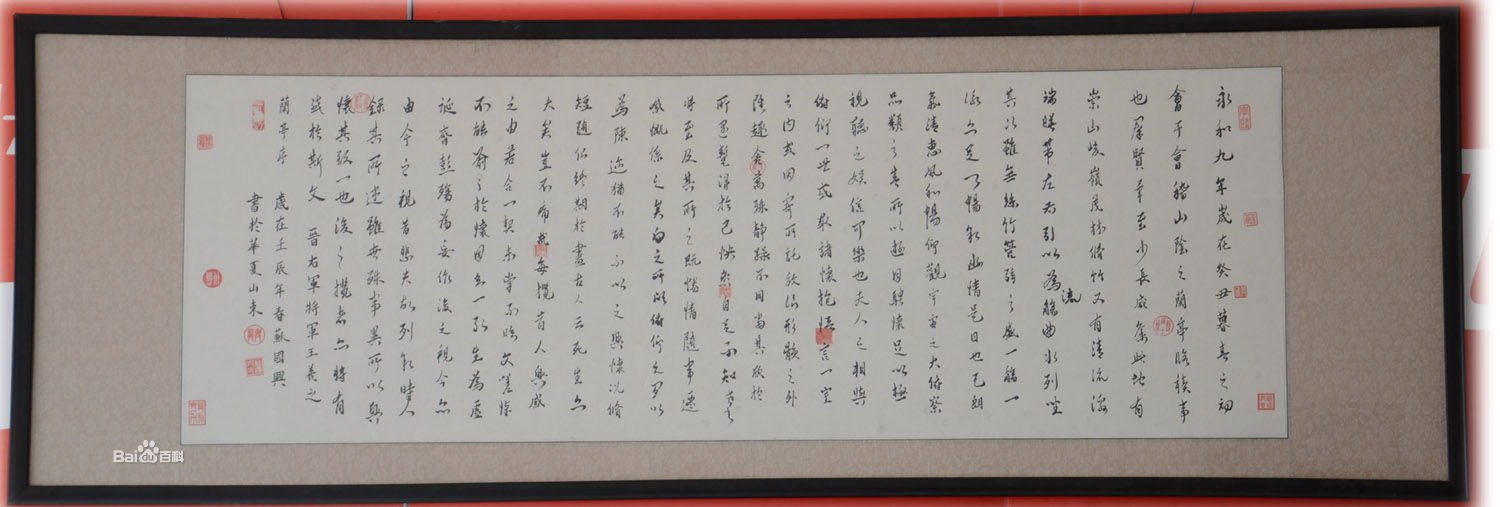 永和九年歲在癸丑暮春之初
會于會稽山陰之蘭亭脩稧事
也羣賢畢至少長咸集此地有
崇山峻嶺茂林脩竹又有清流激
湍暎帶左右引以為流觴曲水列坐
其次雖無絲竹管弦之盛一觴一
詠亦足以暢敘幽情是日也天朗
氣清惠風和暢仰觀宇宙之大俯察
品類之盛所以遊目騁懷足以極
視聽之娛信可樂也夫人之相與
俯仰一世或取諸懷抱悟言一室
之內或因寄所託放浪形骸之外
雖趣舍萬殊靜躁不同當其欣於
所遇暫得於己怏然自足不知老之
將至及其所之既惓情隨事遷
感慨係之矣向之所欣俯仰之間以
為陳迹猶不能不以之興懷況脩
短隨化終期於盡古人云死生亦
大矣豈不痛哉每攬昔人興感
之由若合一契未嘗不臨文嗟悼
不能喻之於懷固知一死生為虛
誕齊彭殤為妄作後之視今亦
由今之視昔悲夫故列敘時人
錄其所述雖世殊事異所以興
懷其致一也後之攬者亦將有
感於斯文 晉右軍將軍王羲之
蘭亭序 歲在壬辰年春蘇國興
書於華夏山東
Baidu百科